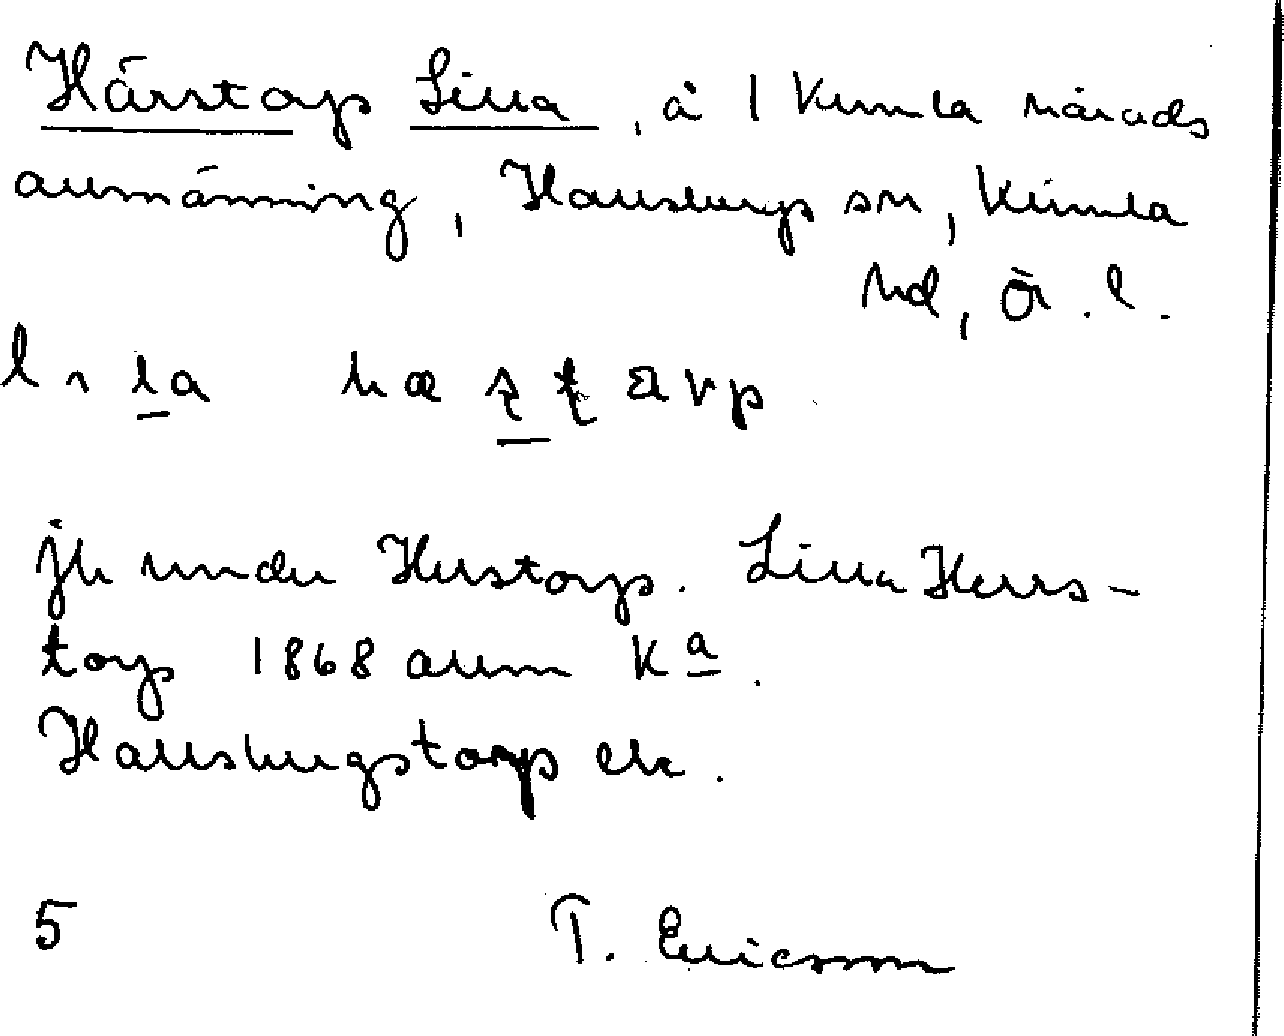 Härstorp Lilla, å 1 Kumla härads
allmänning, Hallsbergs sn, Kumla
hd, Ör. l.
jfr under Herstorp. Lilla Herrs-
torp 1868 allm Kª.
Hallsbergstorp ek.
5 T. Ericsson